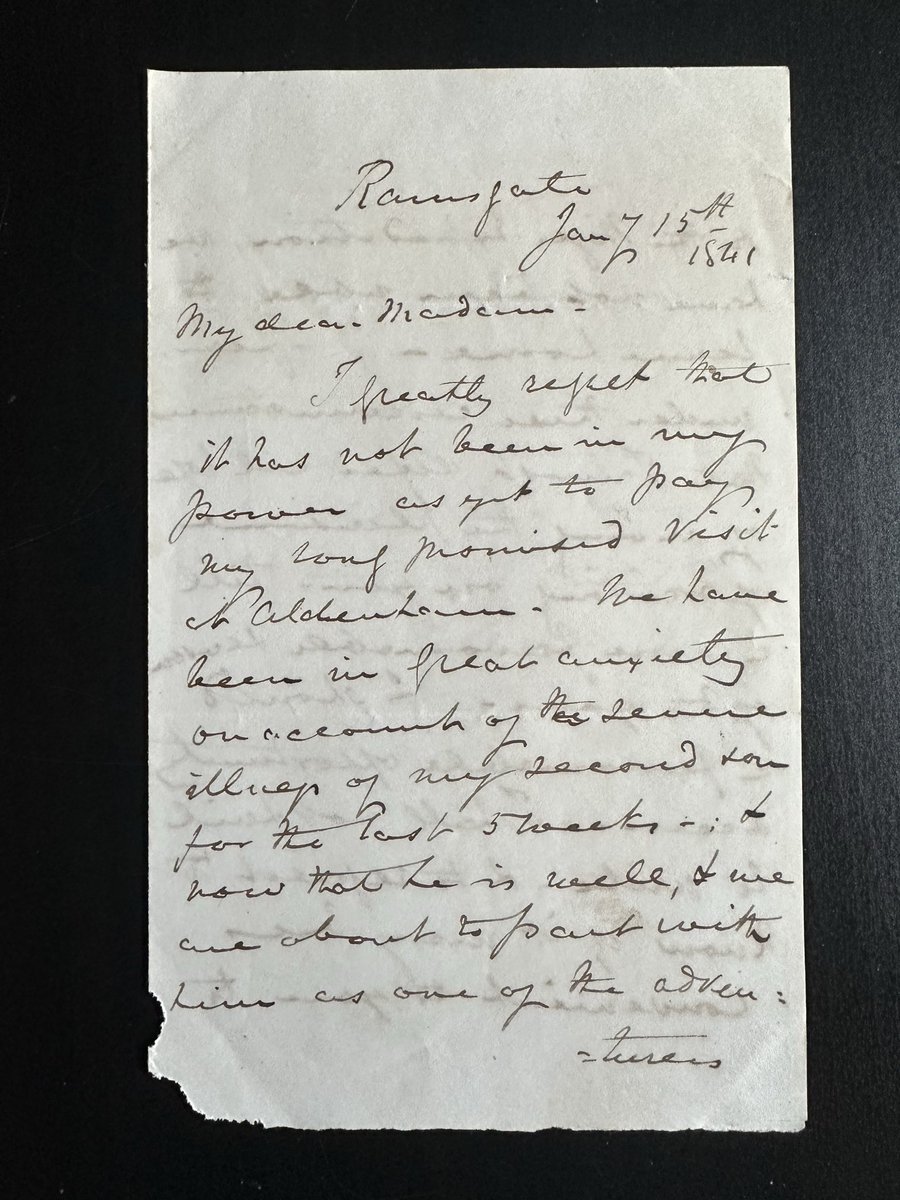 Ramsgate
Jany 15th
1841
My dear Madam -
I greatly regret that
it has not been in my
power as yet to pay
my long promised visit
at Aldenham - We have
been in great anxiety
on account of the severe
illness of my second son
for the last 5 weeks - : &
now that he is well, & we
are about to part with
him as one of the adven :
= turers